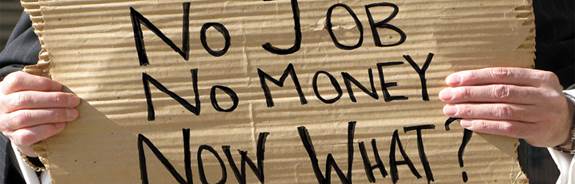 No JOB
No MONEY
NOW WHAT?